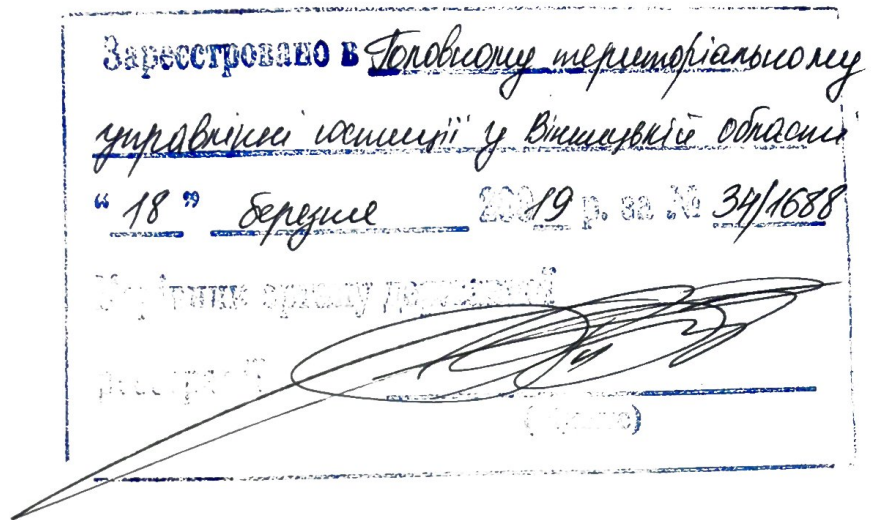 Зареєстровано в Головному територіальному
управлінні юстиції у Вінницькій області
“ 18 ” березня 2019 р. за № 34/1688
Керівник органу державної
реєстрації
(підпис)